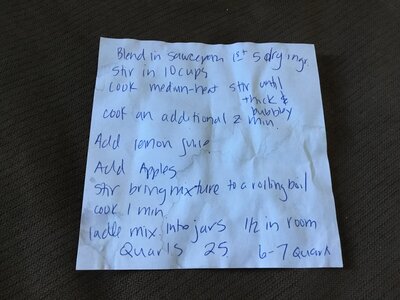 Blend in saucepan 1st 5 dry ingr.
Stir in 10 cups
Cook medium-heat stir until
thick &
bubbley
cook an additional 2 min.
Add lemon juice.
Add Apples
Stir bring mixture to a rolling boil
cook 1 min.
ladle mix. into jars 1/2 in room
Quarts 25 6-7 Quart